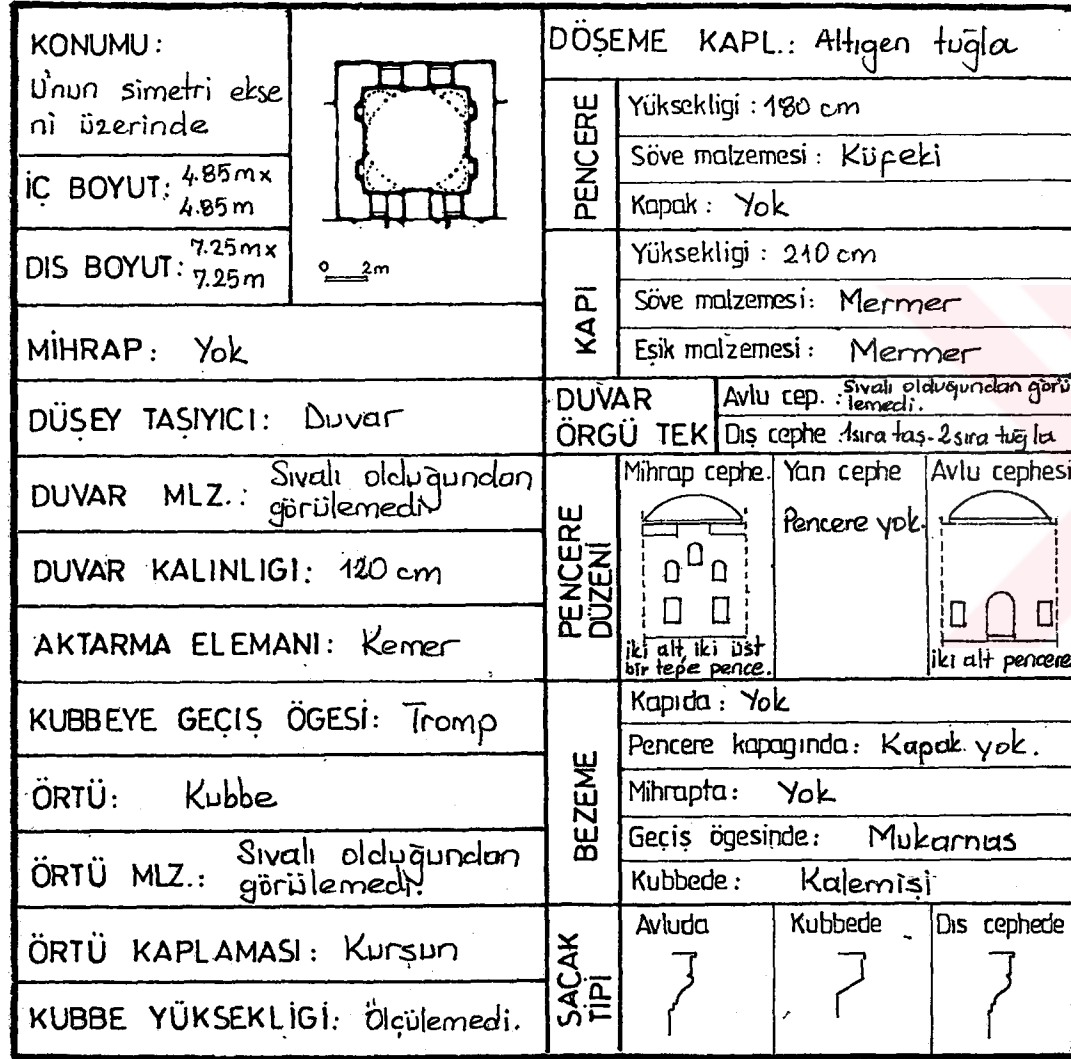 KONUMU:
U'nun simetri ekse
ni üzerinde
İÇ BOYUT: 4.85m x
4.85m
DIS BOYUT: 7.25m x
7.25m
0 2m
MİHRAP: Yok
DÜŞEY TAŞIYICI: Duvar
DUVAR MLZ.: Sıvalı olduğundan
görülemedi
DUVAR KALINLIGI: 120 cm
AKTARMA ELEMANI: Kemer
KUBBEYE GEÇİŞ ÖGESİ: Tromp
ÖRTÜ: Kubbe
ÖRTÜ MLZ.: Sıvalı olduğundan
görülemedi.
ÖRTÜ KAPLAMASI: Kurşun
KUBBE YÜKSEKLİGİ: Ölçülemedi.
DÖŞEME KAPL.: Altıgen tuğla
PENCERE
Yüksekligi: 180 cm
Söve malzemesi: Küfeki
Kapak: Yok
KAPI
Yüksekligi: 210 cm
Söve malzemesi: Mermer
Eşik malzemesi: Mermer
DUVAR
ÖRGÜ TEK
Avlu cep.: Sıvalı olduğundan görü
lemedi.
Dış cephe: 1sıra taş-2sıra tuğla
PENCERE
DÜZENİ
Mihrap cephe.
iki alt, iki üst
bir tepe pence.
Yan cephe
Pencere yok.
Avlu cephesi
iki alt pencere
BEZEME
Kapıda: Yok
Pencere kapagında: Kapak yok.
Mihrapta: Yok
Geçiş ögesinde: Mukarnas
Kubbede: Kalemişi
SAÇAK
TİPİ
Avluda
Kubbede
Dıs cephede